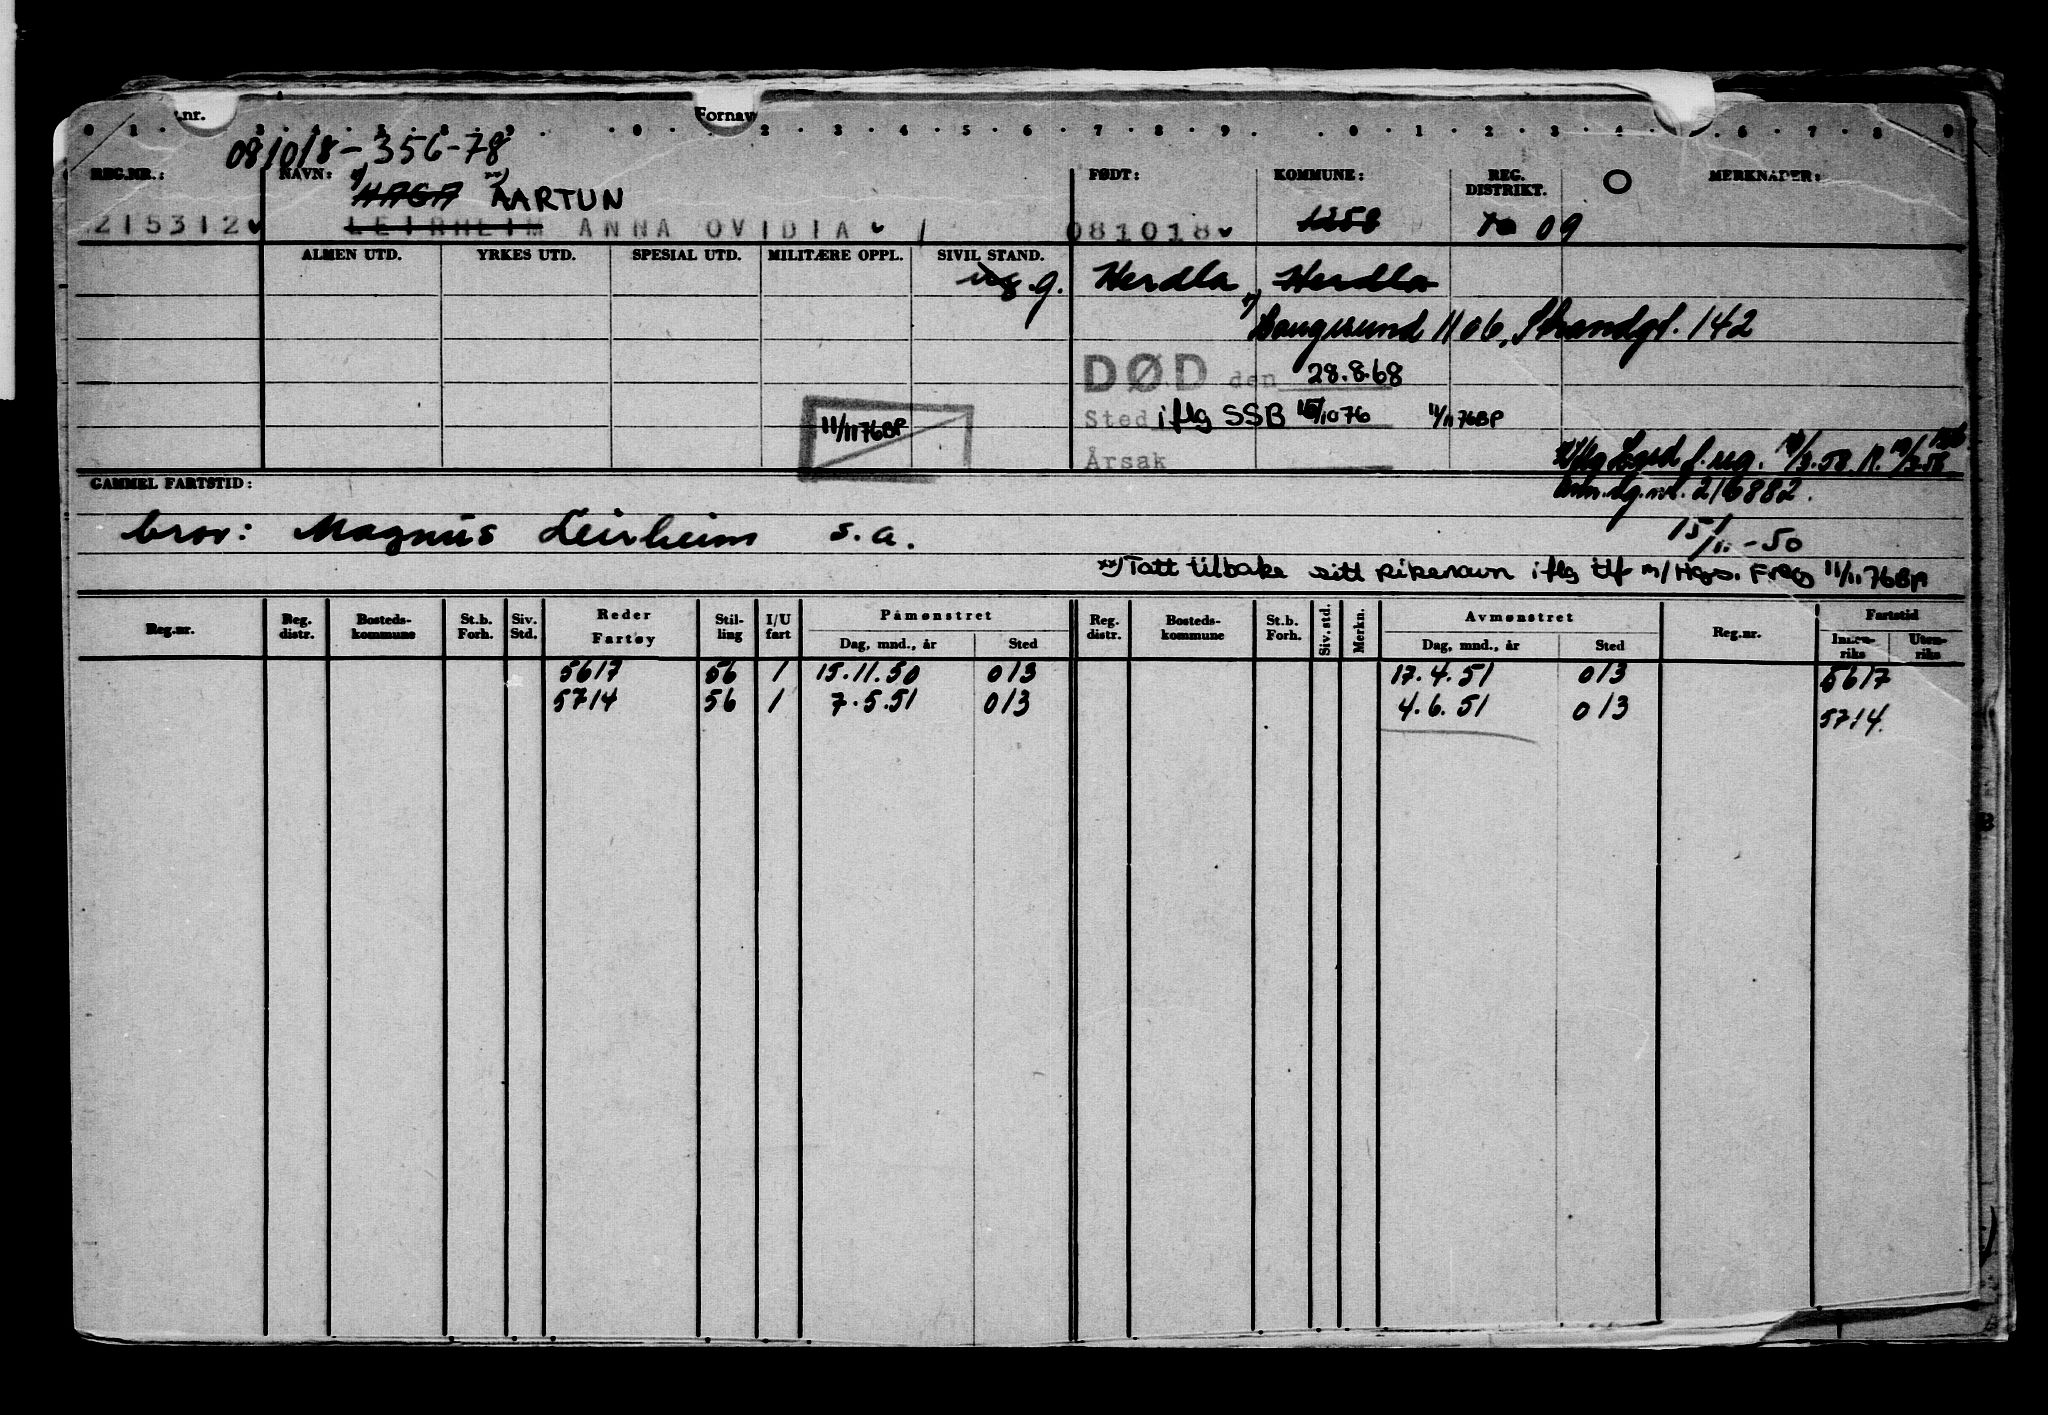 .nr. Fornav
081018-356-78
REG.NR.: NAVN: x) HAGA xx) AARTUN FØDT: KOMMUNE: REG. DISTRIKT. MERKNADER:
215312 LEIRHEIM ANNA OVIDIA 081018 1258 09
ALMEN UTD. YRKES UTD. SPESIAL UTD. MILITÆRE OPPL. SIVIL STAND.
ug g. Herdla, Herdla
x) Haugesund 1106, Strandgt. 142
DØD den 28.8.68
11/11 76BP Sted iflg SSB 15/10 76 11/11 76BP
Årsak
GAMMEL FARTSTID:
216882.
bror: Magnus Leirheim s.a.
15/11-50
xx) Tatt tilbake sitt pikenavn iflg tlf m/Hgs. Freg 11/11 76BP
Reg.nr. Reg. distr. Bosteds-kommune St.b. Forh. Siv. Std. Reder Fartøy Stil-ling I/U fart Påmønstret Dag, mnd., år Sted Reg. distr. Bosteds-kommune St.b. Forh. Siv.std. Merkn. Avmønstret Dag, mnd., år Sted Reg.nr. Fartstid Innen-riks Uten-riks
5617 56 1 15.11.50 013 17.4.51 013 5617
5714 56 1 7.5.51 013 4.6.51 013 5714.